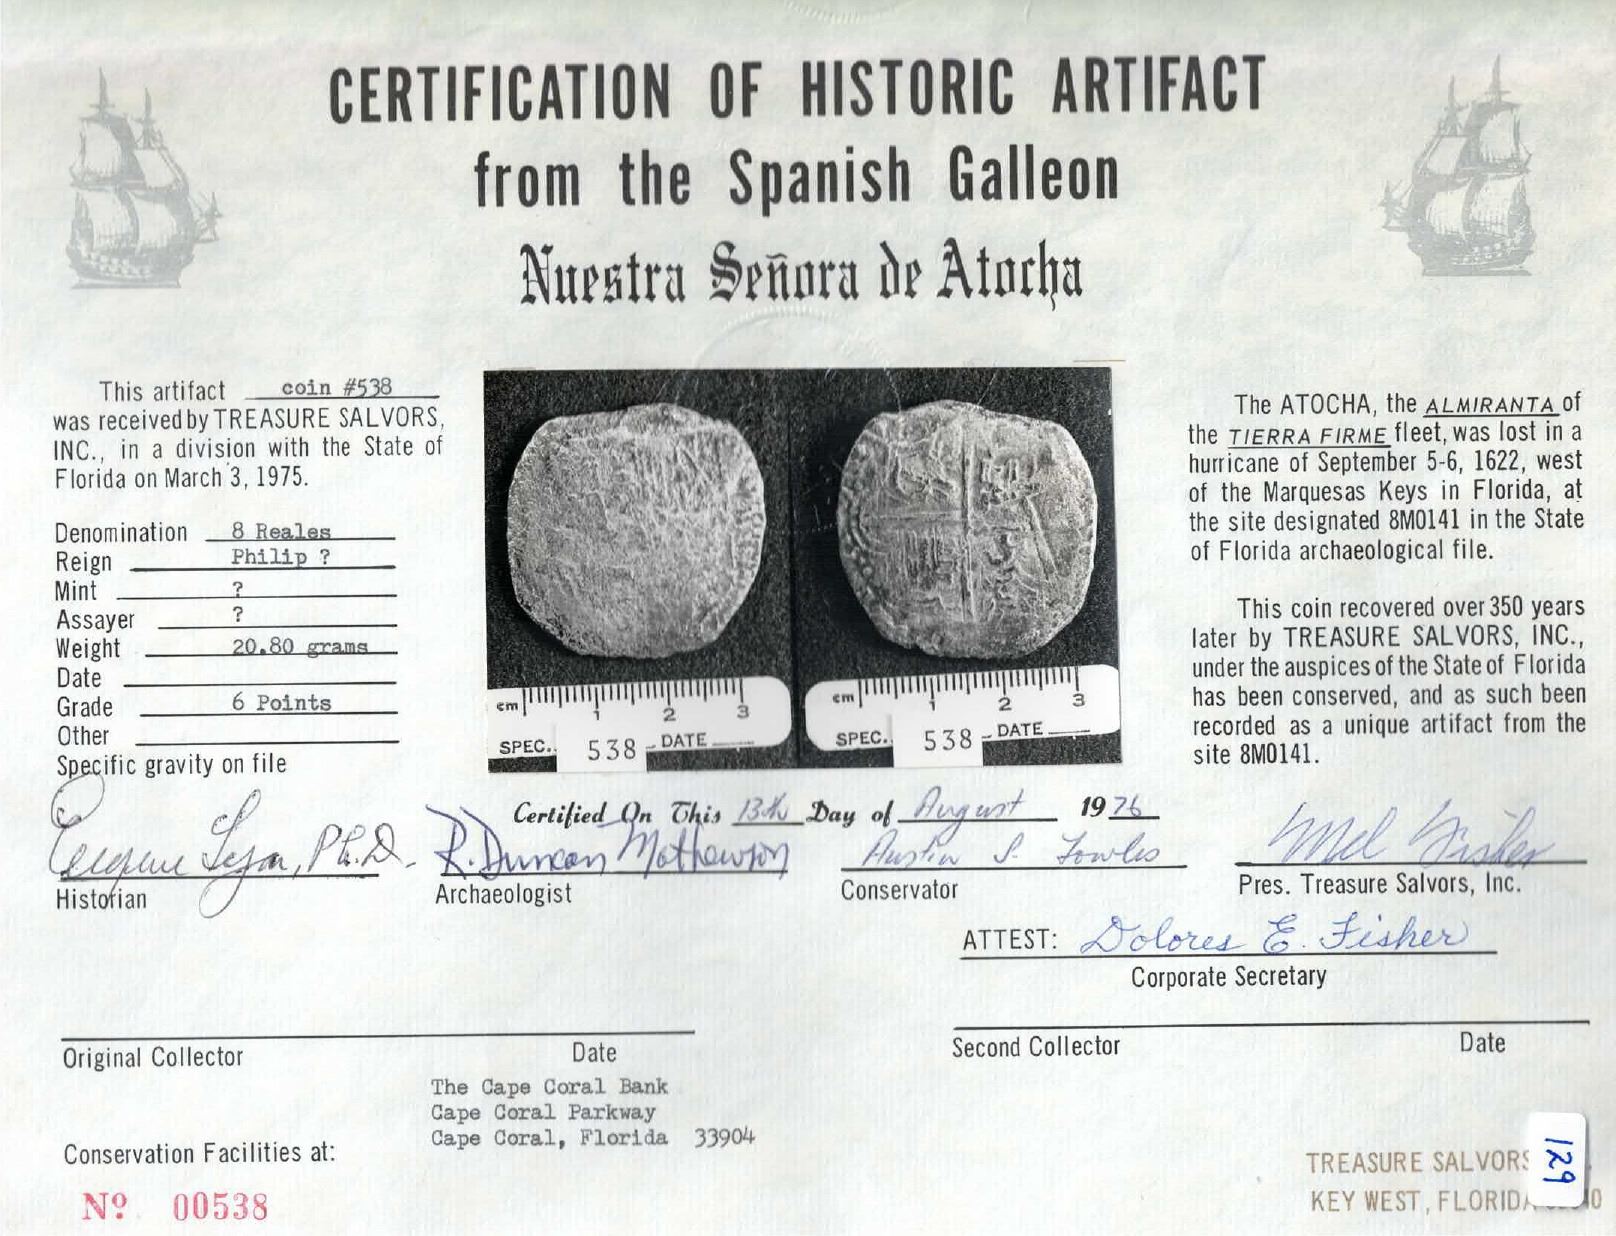 CERTIFICATION OF HISTORIC ARTIFACT
from the Spanish Galleon
Nuestra Señora de Atocha
This artifact coin #538
was received by TREASURE SALVORS,
INC., in a division with the State of
Florida on March 3, 1975.
Denomination 8 Reales
Reign Philip ?
Mint ?
Assayer ?
Weight 20.80 grams
Date
Grade 6 Points
Other
Specific gravity on file
cm 1 2 3
SPEC. 538 DATE
cm 1 2 3
SPEC. 538 DATE
The ATOCHA, the ALMIRANTA of
the TIERRA FIRME fleet, was lost in a
hurricane of September 5-6, 1622, west
of the Marquesas Keys in Florida, at
the site designated 8M0141 in the State
of Florida archaeological file.
This coin recovered over 350 years
later by TREASURE SALVORS, INC.,
under the auspices of the State of Florida
has been conserved, and as such been
recorded as a unique artifact from the
site 8M0141.
Certified On This 13th Day of August 1976
Eugene Lyon, Ph.D.
Historian
R. Duncan Mathewson
Archaeologist
Austin S. Fowles
Conservator
Mel Fisher
Pres. Treasure Salvors, Inc.
ATTEST: Dolores E. Fisher
Corporate Secretary
Original Collector Date
Second Collector Date
The Cape Coral Bank
Cape Coral Parkway
Cape Coral, Florida 33904
Conservation Facilities at:
Nº 00538
TREASURE SALVORS
KEY WEST, FLORIDA
129